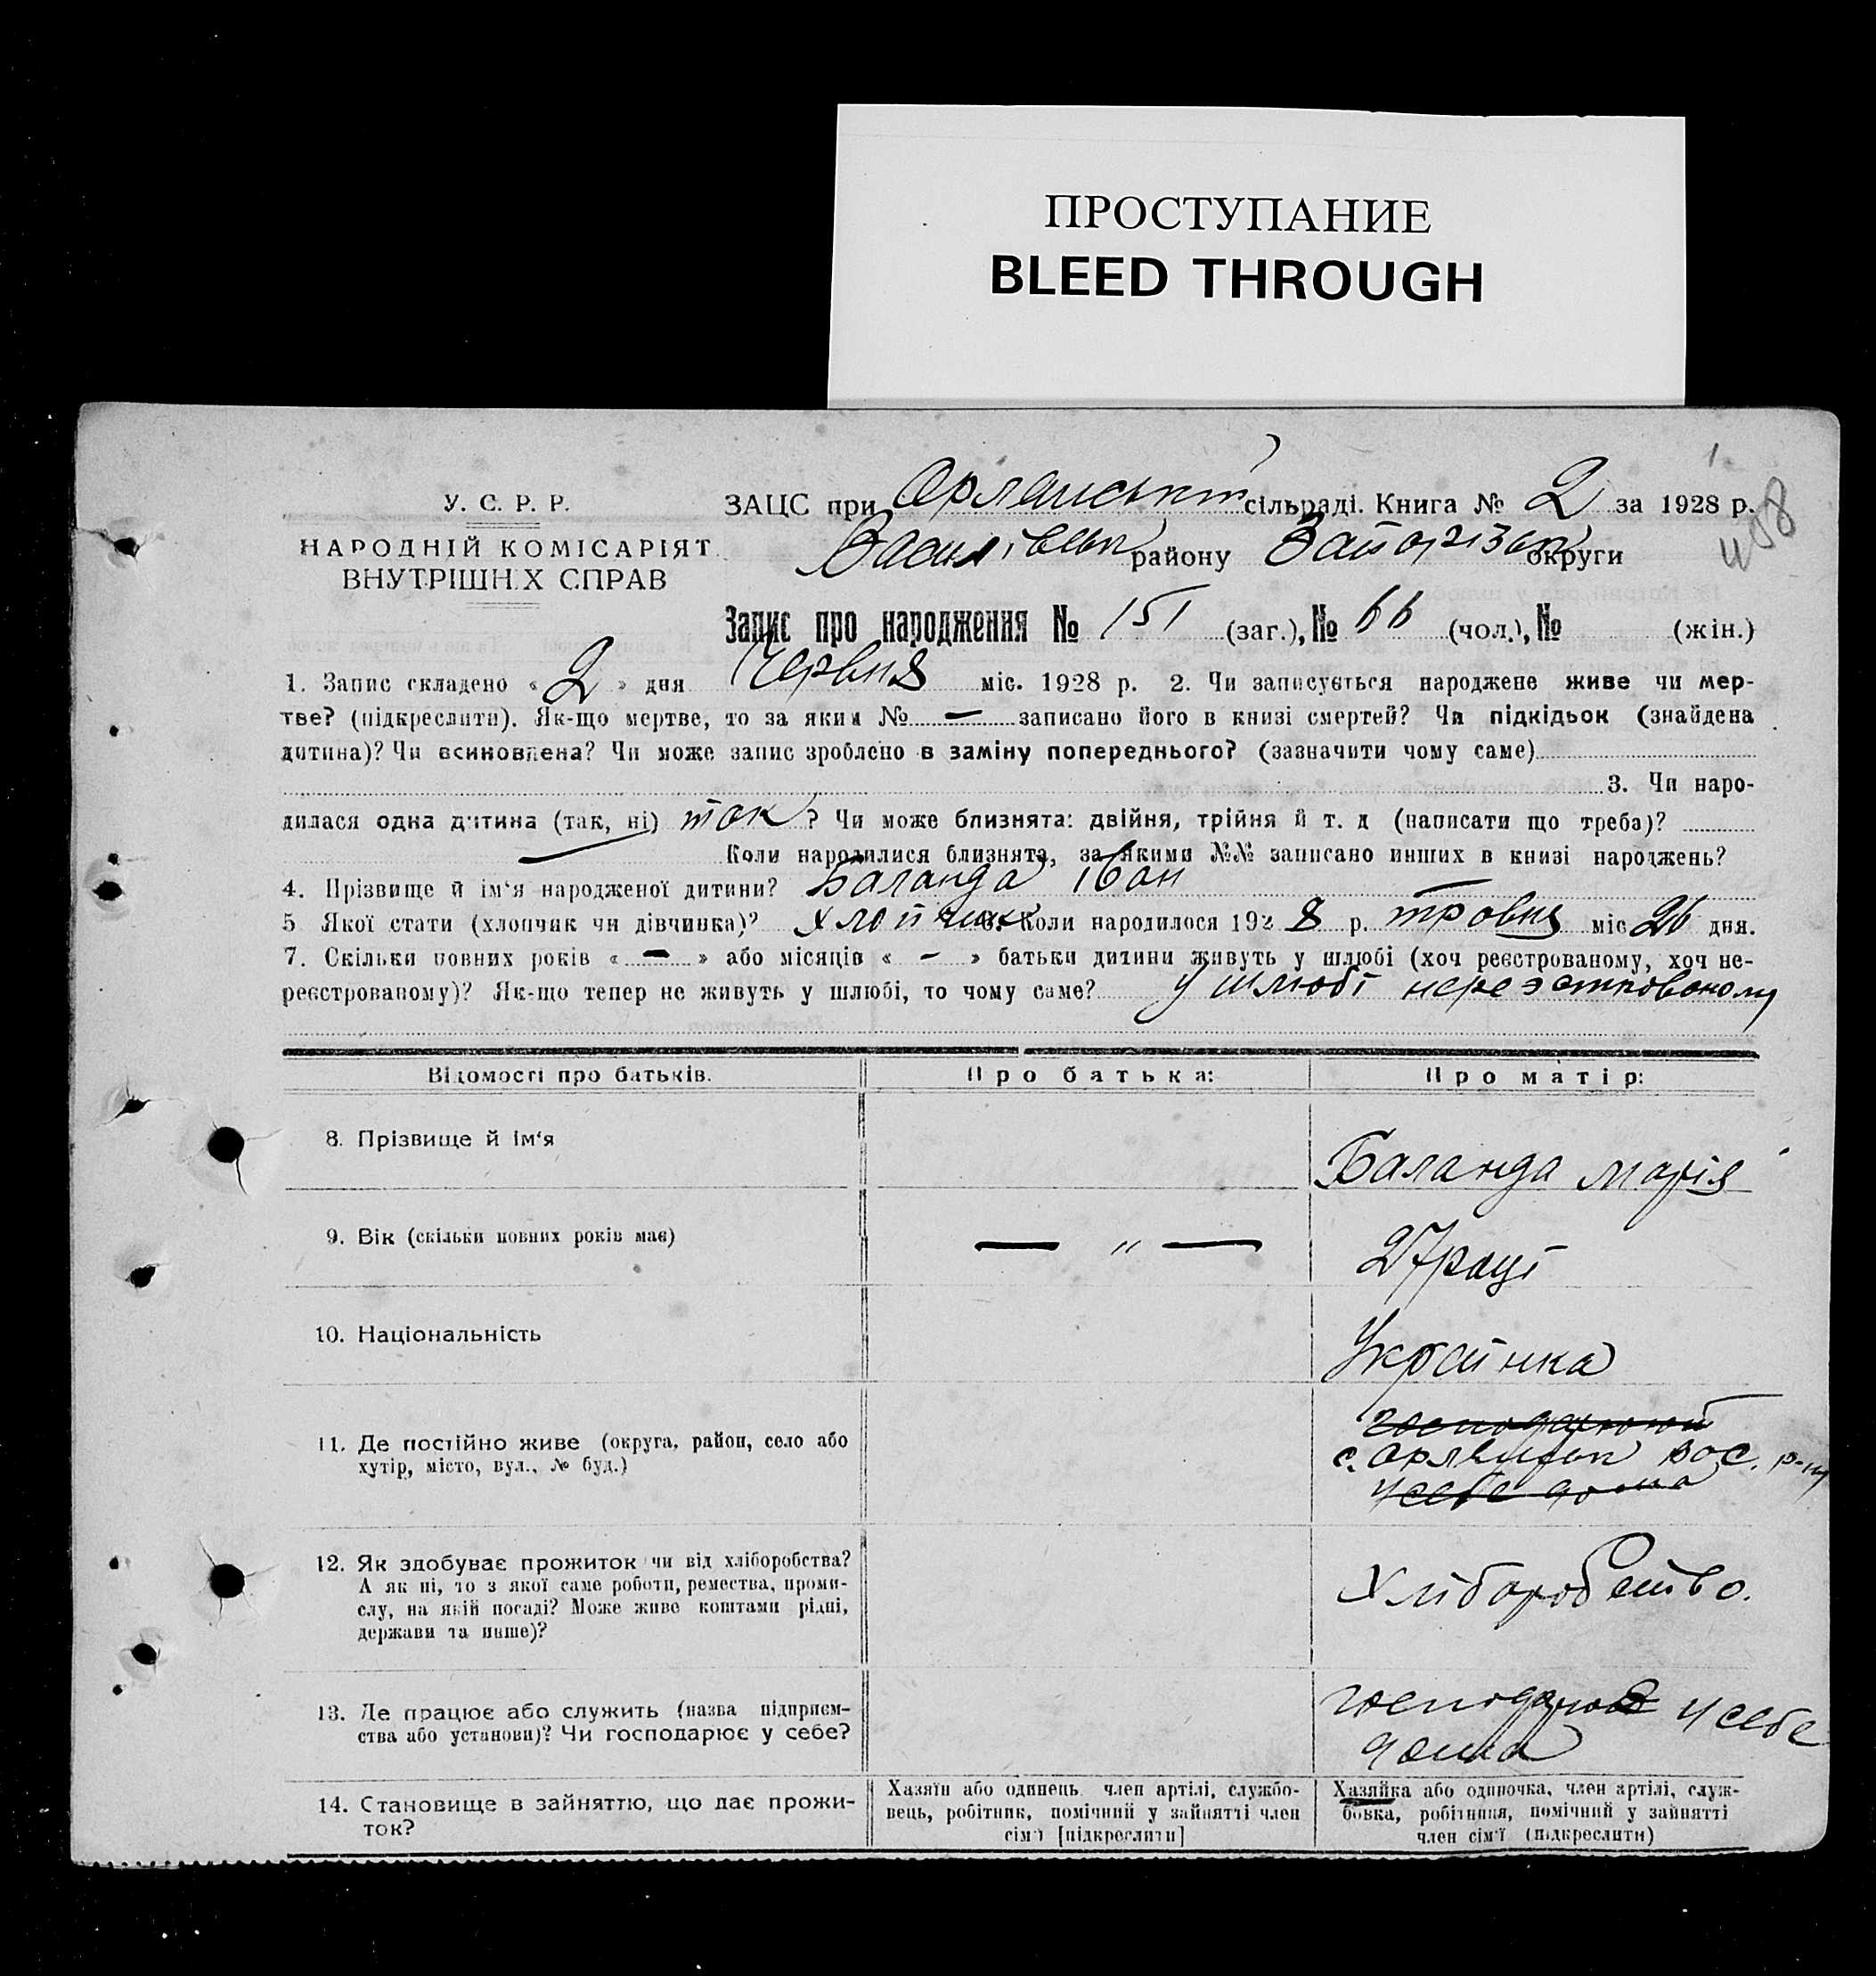 ПРОСТУПАНИЕ
BLEED THROUGH
1
У. С. Р. Р.
НАРОДНІЙ КОМІСАРІЯТ
ВНУТРІШНІХ СПРАВ
ЗАЦС при Орлянській сільраді. Книга № 2 за 1928 р.
Василівськ району Запорізьк округи
Запис про народження № 151 (заг.), № 66 (чол.), № (жін.)
1. Запис складено « 2 » дня Червня міс. 1928 р. 2. Чи записується народжене живе чи мер-
тве? (підкреслити). Як-що мертве, то за яким № — записано його в книзі смертей? Чи підкідьок (знайдена
дитина)? Чи всиновлена? Чи може запис зроблено в заміну попереднього? (зазначити чому саме)
3. Чи наро-
дилася одна дитина (так, ні) так ? Чи може близнята: двійня, трійня й т. д (написати що треба)?
Коли народилися близнята, за якими №№ записано инших в книзі народжень?
4. Прізвище й ім'я народженої дитини? Баланда Іван
5 Якої стати (хлопчик чи дівчинка)? хлопчик 6. Коли народилося 1928 р. травня міс 26 дня.
7. Скільки повних років « — » або місяців « - » батьки дитини живуть у шлюбі (хоч реєстрованому, хоч не-
реєстрованому)? Як-що тепер не живуть у шлюбі, то чому саме? у шлюбі
Відомості про батьків. Про батька: Про матір:
8. Прізвище й ім'я Баланда Марія
9. Вік (скільки повних років має) — " — 27 років
10. Національність Українка
11. Де постійно живе (округа, район, село або
хутір, місто, вул., № буд.)
с. Вас. р-ну
у себе дома
12. Як здобуває прожиток чи від хліборобства?
А як ні, то з якої саме роботи, ремества, проми-
слу, на якій посаді? Може живе коштами рідні,
держави та инше)?
Хліборобство.
13. Де працює або служить (назва підприєм-
ства або установи)? Чи господарює у себе?
господарює у себе
дома
14. Становище в зайняттю, що дає прожи-
ток?
Хазяїн або одинець, член артілі, службо-
вець, робітник, помічний у зайнятті член
сім'ї [підкреслити]
Хазяйка або одиночка, член артілі, служ-
бовка, робітниця, помічний у зайнятті
член сім'ї (підкреслити)